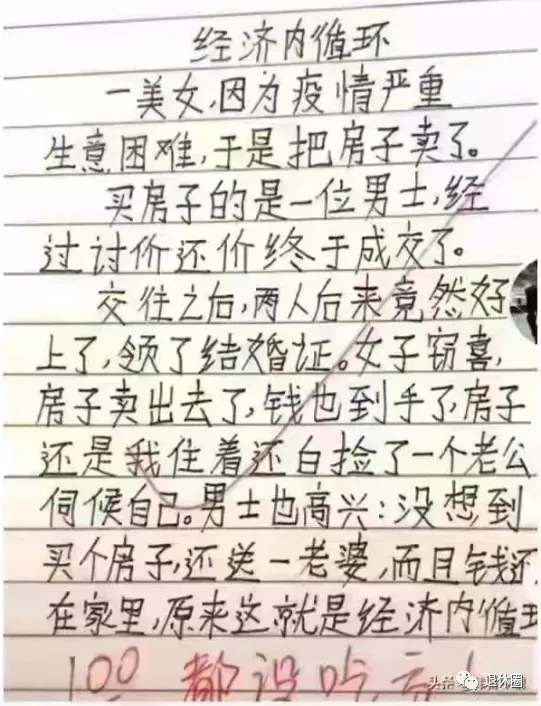 经济内循环
一美女,因为疫情严重
生意困难,于是把房子卖了。
买房子的是一位男士,经
过讨价还价终于成交了。
交往之后,两人后来竟然好
上了,领了结婚证。女子窃喜,
房子卖出去了,钱也到手了,房子
还是我住着还白捡了一个老公
伺候自己。男士也高兴:没想到
买个房子,还送一老婆,而且钱还
在家里,原来这就是经济内循环
100 都没吃亏!
头条
退休圈